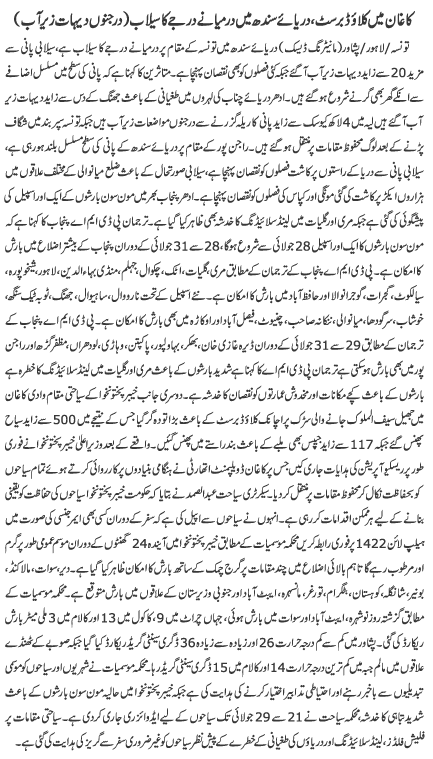 کاغان میں کلاؤڈ برسٹ، دریائے سندھ میں درمیانے درجے کا سیلاب (درجنوں دیہات زیر آب)
تونسہ/لاہور/پشاور (مانیٹرنگ ڈیسک) دریائے سندھ میں تونسہ کے مقام پر درمیانے درجے کا سیلاب ہے، سیلابی پانی سے
مزید 20 سے زاید دیہات زیر آب آگئے جبکہ کئی فصلوں کو بھی نقصان پہنچا ہے۔ متاثرین کا کہنا ہے کہ پانی کی سطح میں مسلسل اضافے
سے انکے گھر بھی گرنے شروع ہوگئے ہیں۔ ادھر دریائے چناب کی لہروں میں طغیانی کے باعث جھنگ کے دس سے زاید دیہات زیر
آب آگئے ہیں لیہ میں 4 لاکھ کیوسک سے زاید پانی کا ریلہ گزرنے سے درجنوں مواضعات زیر آب ہیں جبکہ تونسہ سپر بند میں شگاف
پڑنے کے بعد لوگ محفوظ مقامات پر منتقل ہوگئے ہیں۔ راجن پور کے مقام پر دریائے سندھ کے پانی کی سطح مسلسل بلند ہورہی ہے،
سیلابی پانی سے دریا کے راستوں پر کاشت کی گئی فصلوں کو نقصان پہنچا ہے، سیلابی صورتحال کے باعث ضلع میانوالی کے مختلف علاقوں میں
ہزاروں ایکڑ پر کاشت کی گئی مونگی اور کپاس کی فصلوں کو نقصان پہنچا ہے۔ ادھر پنجاب بھر میں مون سون بارشوں کے ایک اور اسپیل کی
پیشگوئی کی گئی ہے جبکہ مری اور گلیات میں لینڈ سلائیڈنگ کا خدشہ بھی ظاہر کیا گیا ہے۔ ترجمان پی ڈی ایم اے پنجاب کا کہنا ہے کہ
مون سون بارشوں کا ایک اور اسپیل 28 جولائی سے شروع ہوگا، 28 سے 31 جولائی کے دوران پنجاب کے بیشتر اضلاع میں بارش
کا امکان ہے۔ پی ڈی ایم اے پنجاب کے ترجمان کے مطابق مری، گلیات، اٹک، چکوال، جہلم، منڈی بہاءالدین، لاہور، شیخوپورہ،
سیالکوٹ، گجرات، گوجرانوالا اور حافظ آباد میں بارش کا امکان ہے۔ نئے اسپیل کے تحت نارووال، ساہیوال، جھنگ، ٹوبہ ٹیک سنگھ،
خوشاب، سرگودھا، میانوالی، ننکانہ صاحب، چنیوٹ، فیصل آباد اور اوکاڑہ میں بھی بارش کا امکان ہے۔ پی ڈی ایم اے پنجاب کے
ترجمان کے مطابق 29 سے 31 جولائی کے دوران ڈیرہ غازی خان، بھکر، بہاولپور، پاکپتن، وہاڑی، لودھراں، مظفر گڑھ اور راجن
پور میں بھی بارش ہوسکتی ہے ترجمان پی، ڈی ایم اے کا کہنا ہے شدید بارشوں کے باعث مری اور گلیات میں لینڈ سلائیڈنگ کا خطرہ ہے
بارشوں کے باعث کچے مکانات اور مخدوش عمارتوں کا خدشہ ہے۔ دوسری جانب خیبر پختونخوا کے سیاحتی مقام وادی کاغان
میں جھیل سیف الملوک جانے والی سڑک پر اچانک کلاؤڈ برسٹ کے باعث بڑا تودہ گر گیا جس کے نتیجے میں 500 سے زاید سیاح
پھنس گئے جبکہ 117 سے زاید جیپس بھی ملبے کے باعث بند راستے میں پھنس گئیں۔ واقعے کے بعد وزیر اعلیٰ خیبر پختونخوا نے فوری
طور پر ریسکیو آپریشن کی ہدایات جاری کیں جس پر کاغان ڈویلپمنٹ اتھارٹی نے ہنگامی بنیادوں پر کارروائی کرتے ہوئے تمام سیاحوں
کو بحفاظت نکال کر محفوظ مقامات پر منتقل کردیا۔ سیکرٹری سیاحت عبدالصمد نے بتایا کہ حکومت خیبر پختونخوا سیاحوں کی حفاظت کو یقینی
بنانے کے لیے ہر ممکن اقدامات کر رہی ہے۔ انہوں نے سیاحوں سے اپیل کی ہے کہ سفر کے دوران کسی بھی ایمرجنسی کی صورت میں
ہیلپ لائن 1422 پر فوری رابطہ کریں محکمہ موسمیات کے مطابق خیبر پختونخوا میں آیندہ 24 گھنٹوں کے دوران موسم عمومی طور پر گرم
اور مرطوب رہے گا تاہم بالائی اضلاع میں چند مقامات پر گرج چمک کے ساتھ بارش کا امکان ظاہر کیا گیا ہے۔ دیر، سوات، مالاکنڈ،
بونیر، شانگلہ، کوہستان، بٹگرام، تورغر، مانسہرہ، ایبٹ آباد اور جنوبی وزیرستان کے علاقوں میں بارش متوقع ہے۔ محکمہ موسمیات کے
مطابق گزشتہ روز نوشہرہ، ایبٹ آباد اور سوات میں بارش ہوئی، جہاں چراٹ میں 9، کاکول میں 13 اور کالام میں 3 ملی میٹر بارش
ریکارڈ کی گئی۔ پشاور میں کم سے کم درجہ حرارت 26 اور زیادہ سے زیادہ 36 ڈگری سینٹی گریڈ ریکارڈ کیا گیا، جبکہ صوبے کے ٹھنڈے
علاقوں میں مالم جبہ میں کم ترین درجہ حرارت 14 اور کالام میں 15 ڈگری سینٹی گریڈ رہا۔ محکمہ موسمیات نے شہریوں اور سیاحوں کو موسمی
تبدیلیوں سے باخبر رہنے اور احتیاطی تدابیر اختیار کرنے کی ہدایت کی ہے جبکہ خیبر پختونخوا میں حالیہ مون سون بارشوں کے باعث
شدید تباہی کا خدشہ، محکمہ سیاحت نے 21 سے 29 جولائی تک سیاحوں کے لیے ایڈوائزری جاری کردی ہے۔ سیاحتی مقامات پر
فلیش فلڈز، لینڈ سلائیڈنگ اور دریاؤں کی طغیانی کے خطرے کے پیش نظر سیاحوں کو غیر ضروری سفر سے گریز کی ہدایت کی گئی ہے۔